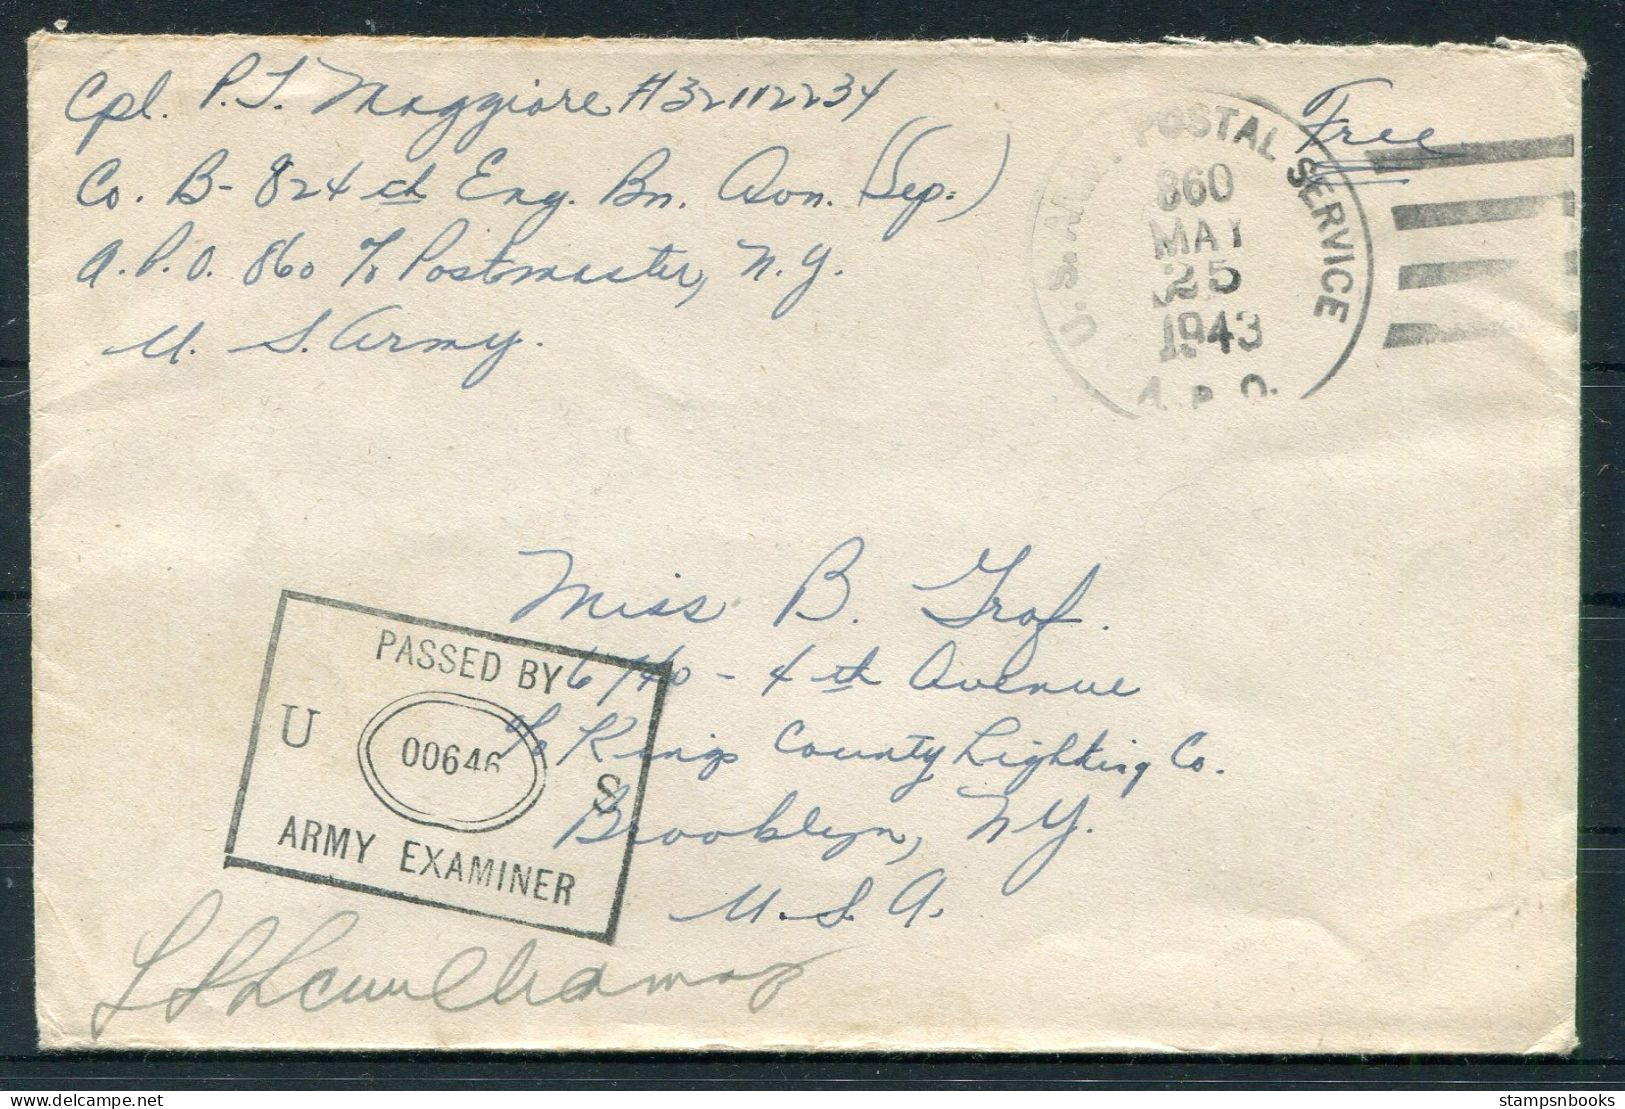 Cpl. P. J. Maggiore #32112234
Co. B- 824th Eng. Bn. Avn. (Sep.)
A.P.O. 860 % Postmaster, N.Y.
U. S. Army.
U.S. ARMY POSTAL SERVICE
860
MAY
25
1943
A.P.O.
Free
Miss B. Graf.
6740 - 4th Avenue
% Kings County Lighting Co.
Brooklyn, N.Y.
U.S.A.
PASSED BY
U 00646 S
ARMY EXAMINER
delcampe.net
stampsnbooks